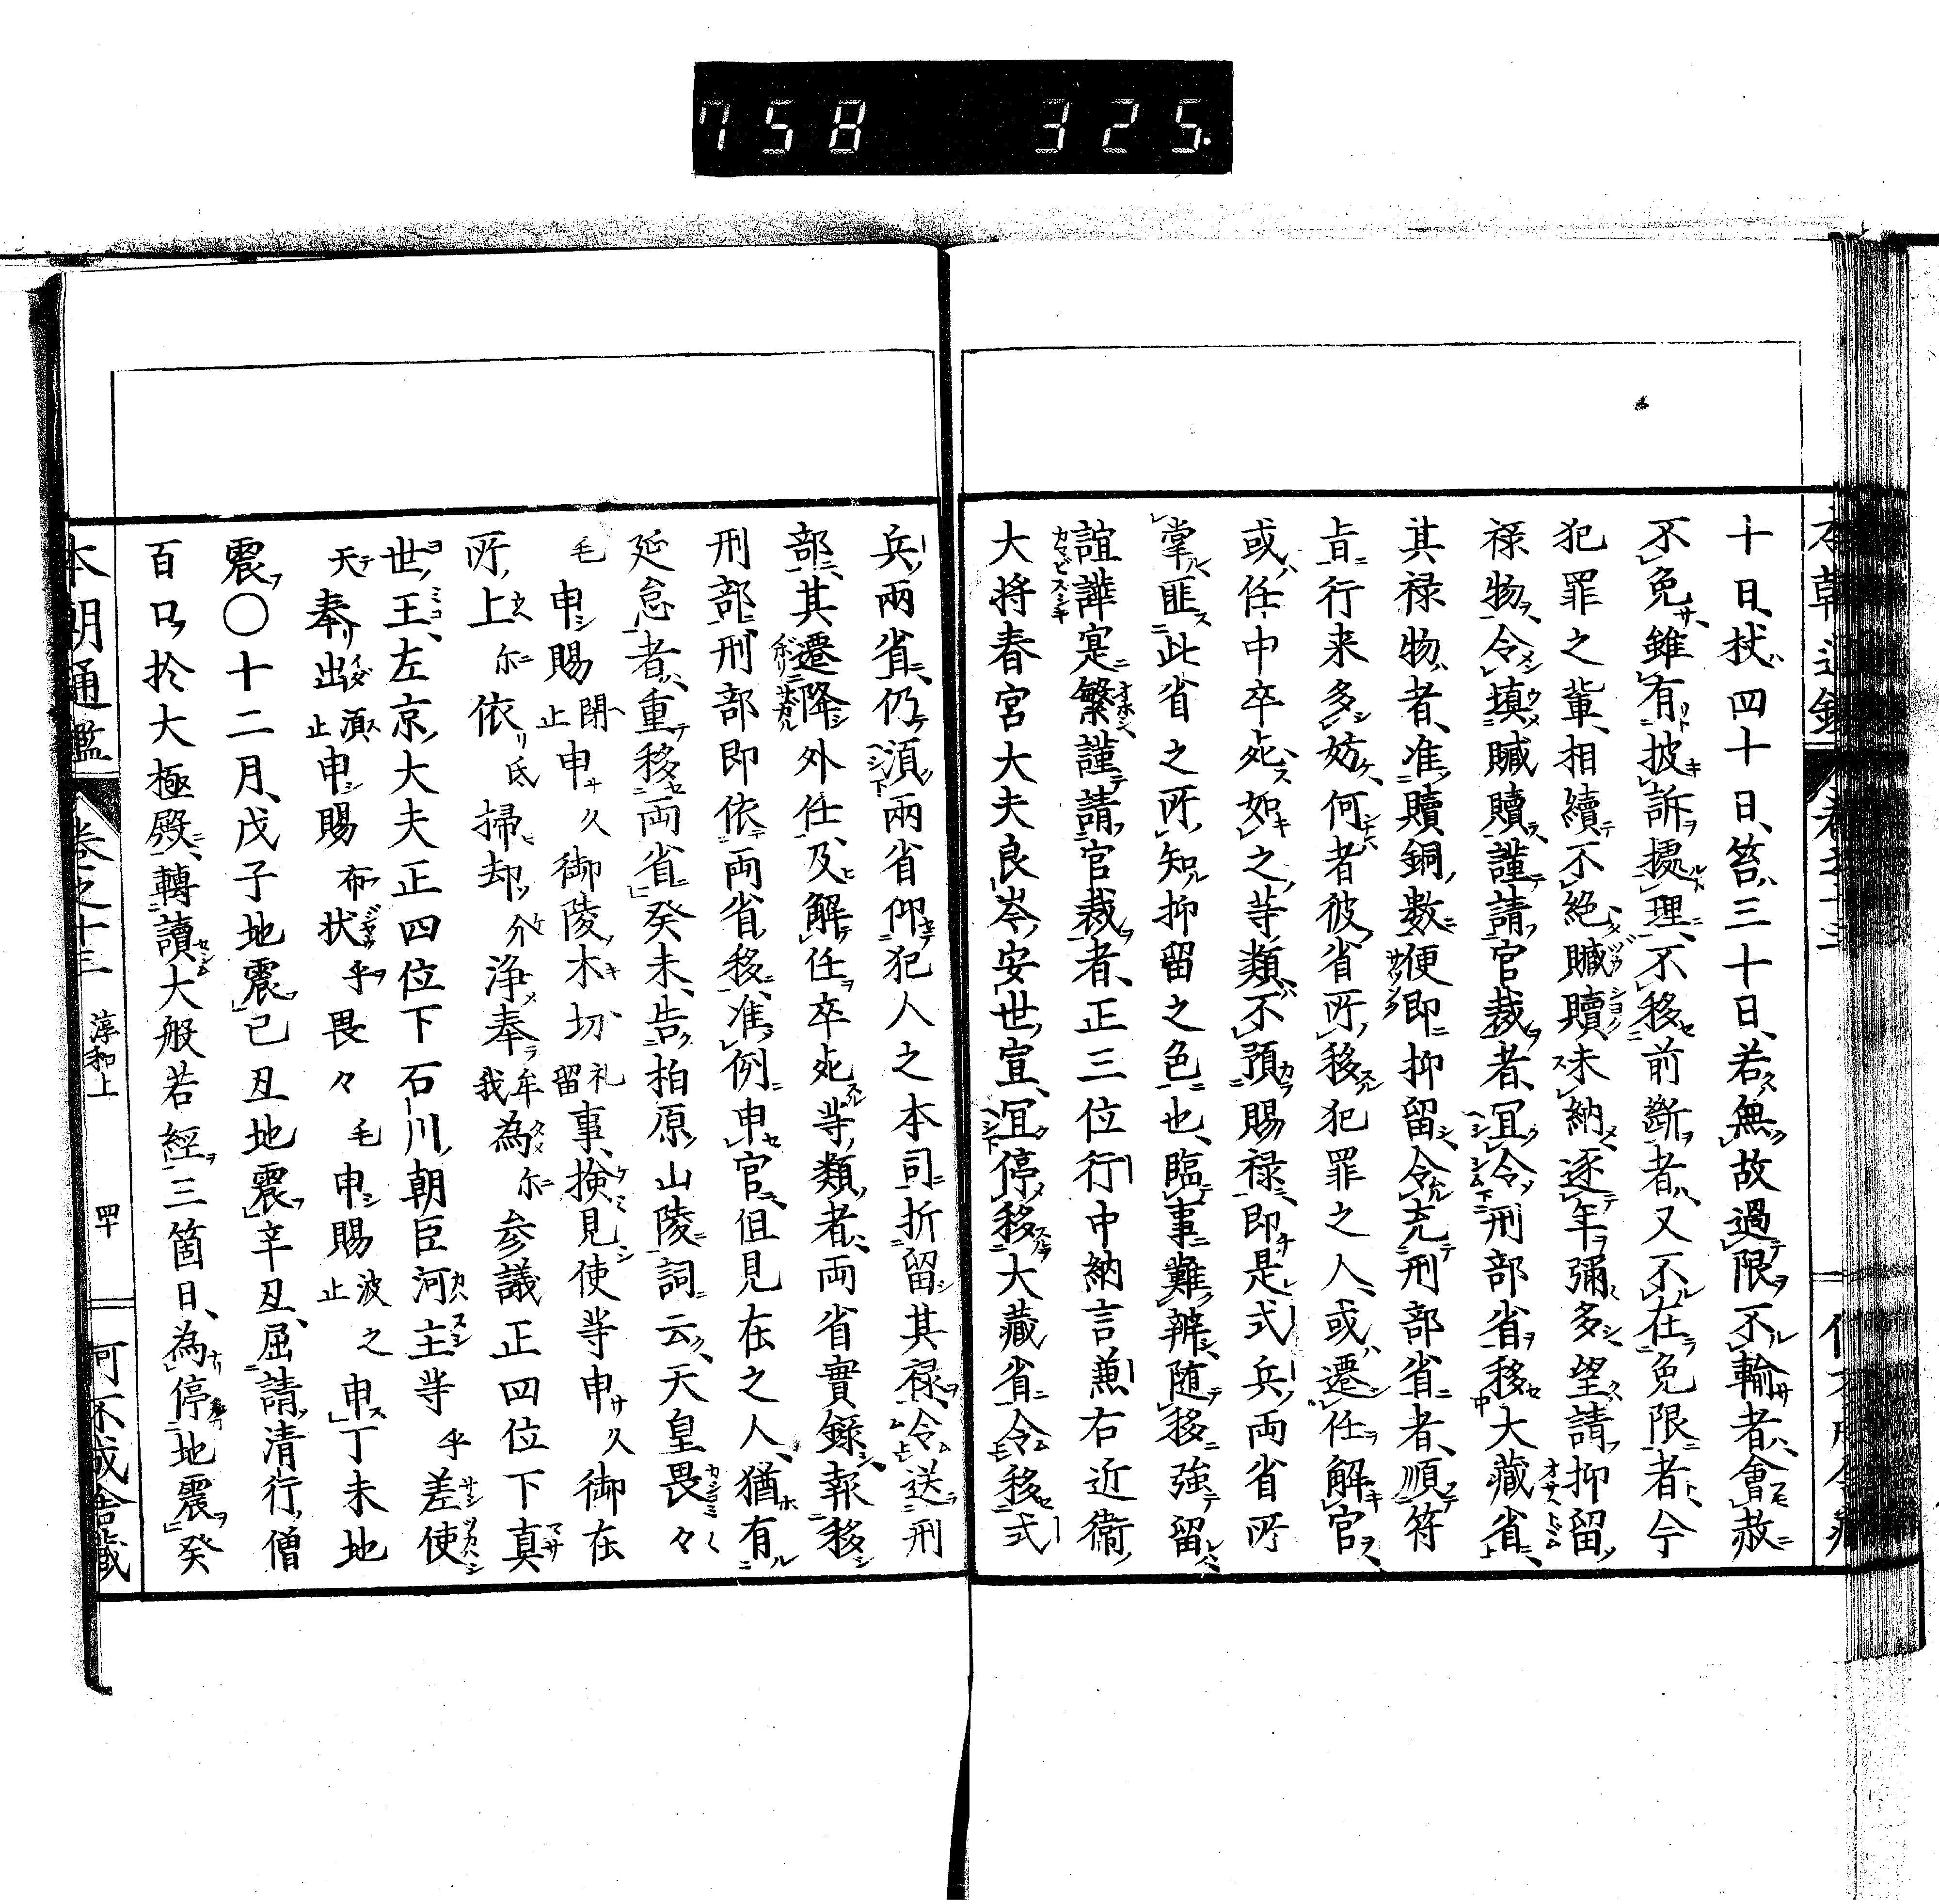 758 325.
十日、杖四十日、笞三十日、若無故過限不輸者、會赦
不免、雖有披訴據理、不移前斷者、又不在免限者、今
犯罪之輩、相續不絶、贓贖未納、逐年彌多、望請抑留
禄物、令填贓贖、謹請官裁者、宜令刑部省移大藏省、
其禄物者、准贖銅數、便即抑留、令充刑部省者、順符
旨行来多妨、何者彼省所移犯罪之人、或遷任解官、
或任中卒死、如之等類、不預賜禄、即是式兵両省所
掌、匪此省之所知、抑留之色也、臨事難辨、随移強留、
諠譁寔繁、謹請官裁者、正三位行中納言兼右近衛
大将春宮大夫良岑安世宣、宜停移大藏省、令移式
兵両省、仍須両省仰犯人之本司、折留其禄、令送刑
部、其遷降外任、及解任卒死等類者、両省實録、報移
刑部、刑部即依両省移、准例申官、但見在之人、猶有
延怠者、重移両省、癸未、告柏原山陵詞云、天皇畏々
毛申賜閉止申久御陵木切礼留事、検見使等申久御在
所上尓依氐掃却介浄奉牟我為尓参議正四位下真
世王左京大夫正四位下石川朝臣河主等乎差使
天奉出須止申賜布状乎畏々毛申賜波止之申丁未地
震○十二月、戊子地震、己丑地震、辛丑、屈請清行僧
百口、於大極殿、轉讀大般若經三箇日、為停地震、癸
本朝通鑑 卷之十三 淳和上 四十